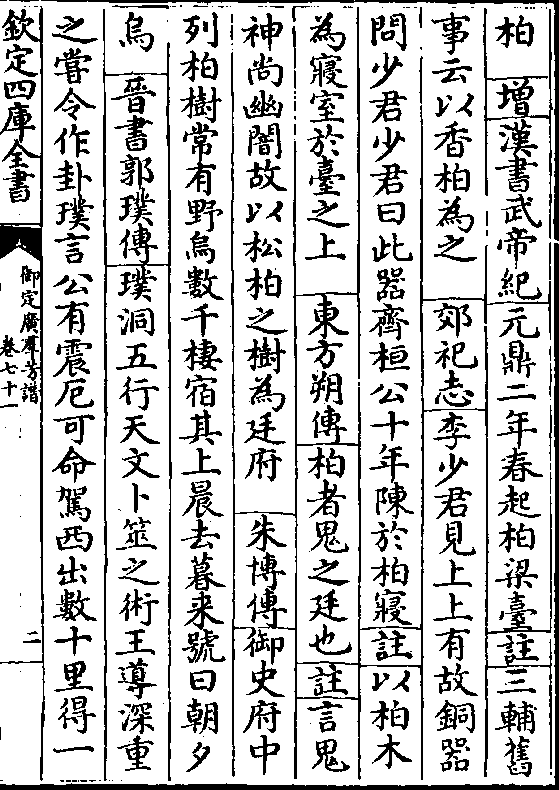 柏　增漢書武帝紀元鼎二年春起柏梁臺註三輔舊
事云以香柏為之　郊祀志李少君見上上有故銅器
問少君少君曰此器齊桓公十年陳於柏寢註以柏木
為寢室於臺之上　東方朔傳柏者鬼之廷也註言鬼
神尚幽闇故以松柏之樹為廷府　朱博傳御史府中
列柏樹常有野烏數千棲宿其上晨去暮来號曰朝夕
烏　晉書郭璞傳璞洞五行天文卜筮之術王導深重
之嘗令作卦璞言公有震厄可命駕西出數十里得一
欽定四庫全書
御定廣羣芳譜
卷七十一
二